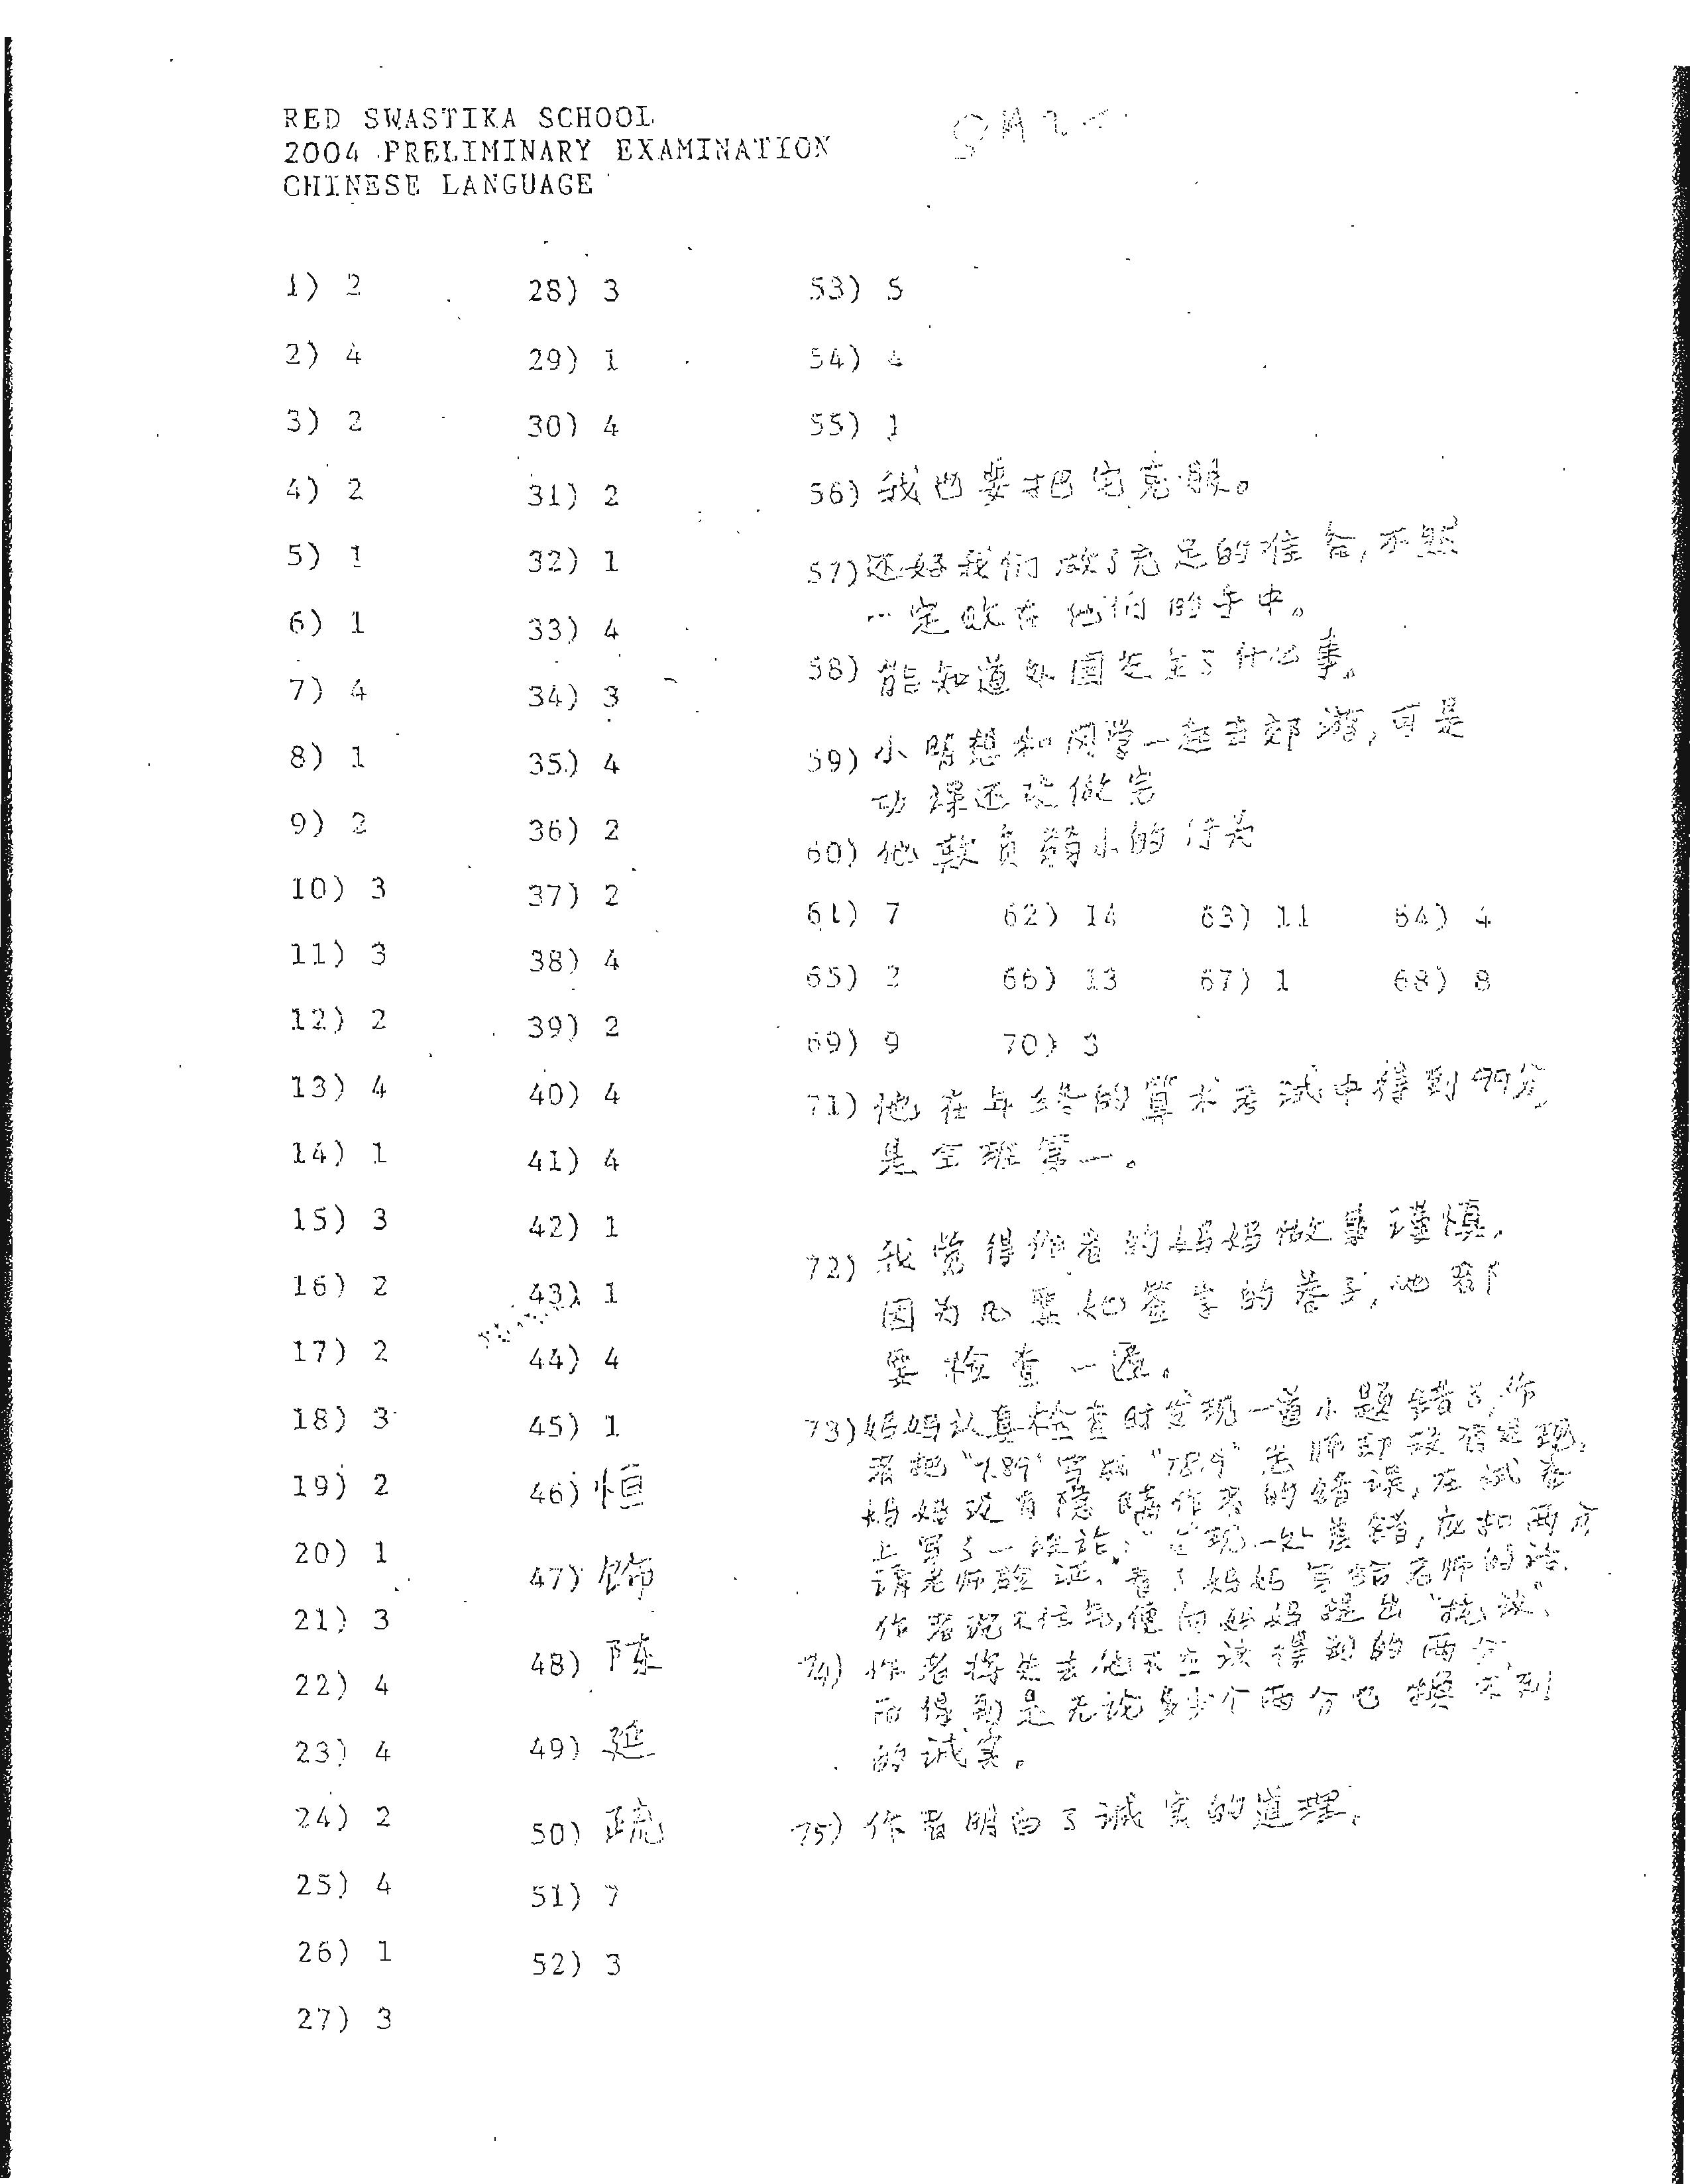 RED SWASTIKA SCHOOL
2004 PRELIMINARY EXAMINATION
CHINESE LANGUAGE
1) 2
2) 4
3) 2
4) 2
5) 1
6) 1
7) 4
8) 1
9) 2
10) 3
11) 3
12) 2
13) 4
14) 1
15) 3
16) 2
17) 2
18) 3
19) 2
20) 1
21) 3
22) 4
23) 4
24) 2
25) 4
26) 1
27) 3
28) 3
29) 1
30) 4
31) 2
32) 1
33) 4
34) 3
35) 4
36) 2
37) 2
38) 4
39) 2
40) 4
41) 4
42) 1
43) 1
44) 4
45) 1
46) 恒
47) 饰
48) 陈
49) 延
50) 疏
51) 7
52) 3
53) 5
54) 4
55) 1
56) 我也要把它克服。
57) 还好我们做了充足的准备,不然
一定败在他们的手中。
58) 能知道外国发生了什么事。
59) 小明想和同学一起去郊游,可是
功课还没做完
60) 他欺负弱小的行为
61) 7 62) 14 63) 11 64) 4
65) 2 66) 13 67) 1 68) 8
69) 9 70) 3
71) 他在年终的算术考试中得到99分
是全班第一。
72) 我觉得作者的妈妈做事谨慎,
因为凡要她签字的卷子,她都
要检查一遍。
73) 妈妈认真检查时发现一道小题错了,作
者把"7.89"写成"78.9"老师却没有发现,
妈妈没有隐瞒作者的错误,在试卷
上写了一段话:"发现一处差错,应扣两分
请老师验证,看了妈妈写给老师的话,
作者沉不住气,便向妈妈提出"抗议"。
74) 作者将失去他不应该得到的两分,
而得到是无论多少个两分也换不到
的诚实。
75) 作者明白了诚实的道理。